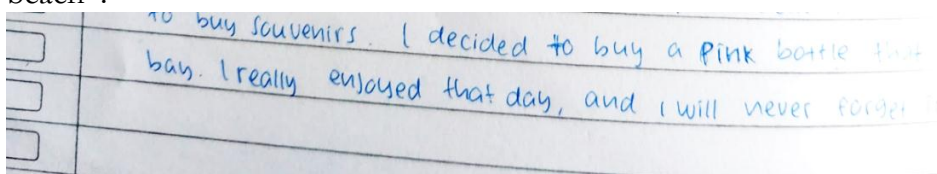 to buy souvenirs. I decided to buy a pink bottle that
bay. I really enjoyed that day, and I will never forget